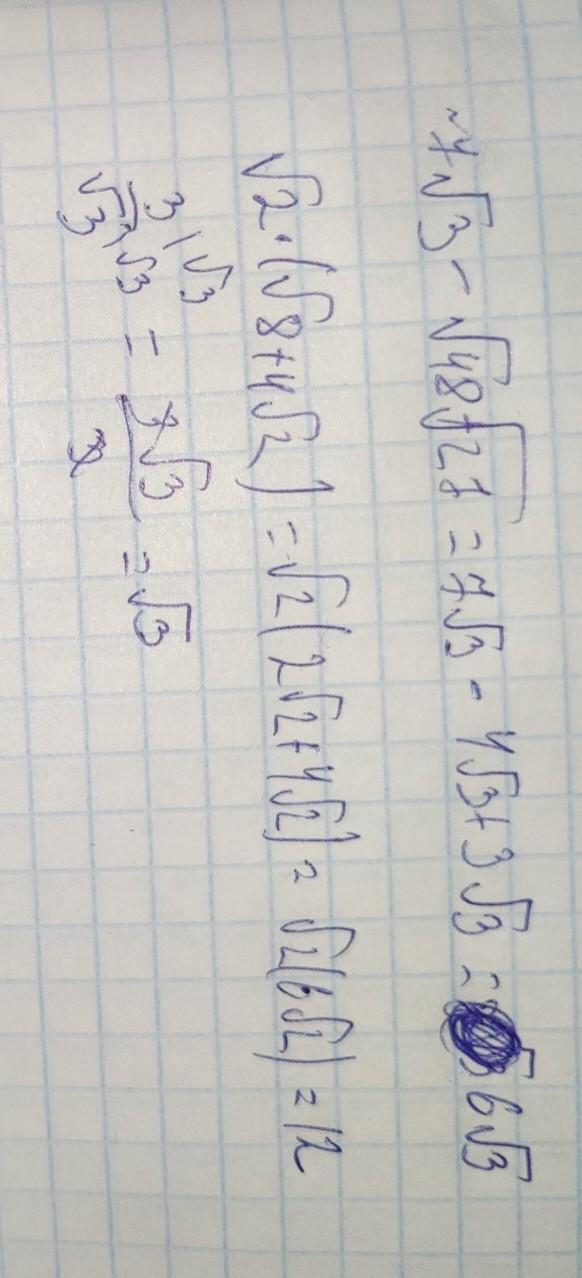 7√3 - √48 + √27 = 7√3 - 4√3 + 3√3 = 6√3
√2 · (√8 + 4√2) = √2(2√2 + 4√2) = √2(6√2) = 12
3\√3 / √3\√3 = 3√3 / 3 = √3